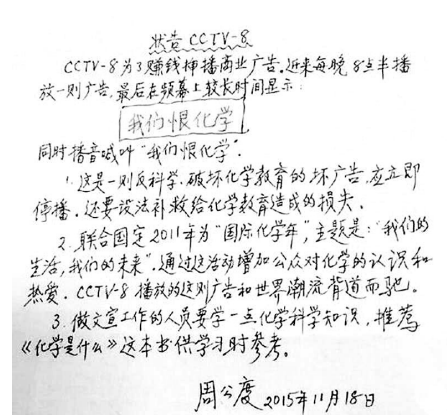 状告CCTV-8
CCTV-8为了赚钱抻播商业广告.近来每晚8点半播
放一则广告,最后在频幕上较长时间显示:
我们恨化学
同时播音喊叫"我们恨化学".
1.这是一则反科学.破坏化学教育的坏广告,应立即
停播.还要设法补救给化学教育造成的损失.
2.联合国定2011年为"国际化学年",主题是:"我们的
生活,我们的未来".通过这活动增加公众对化学的认识和
热爱.CCTV-8播放的这则广告和世界潮流背道而驰.
3.做文宣工作的人员要学一点化学科学知识,推荐
《化学是什么》这本书供学习时参考。
周公度 2015年11月18日